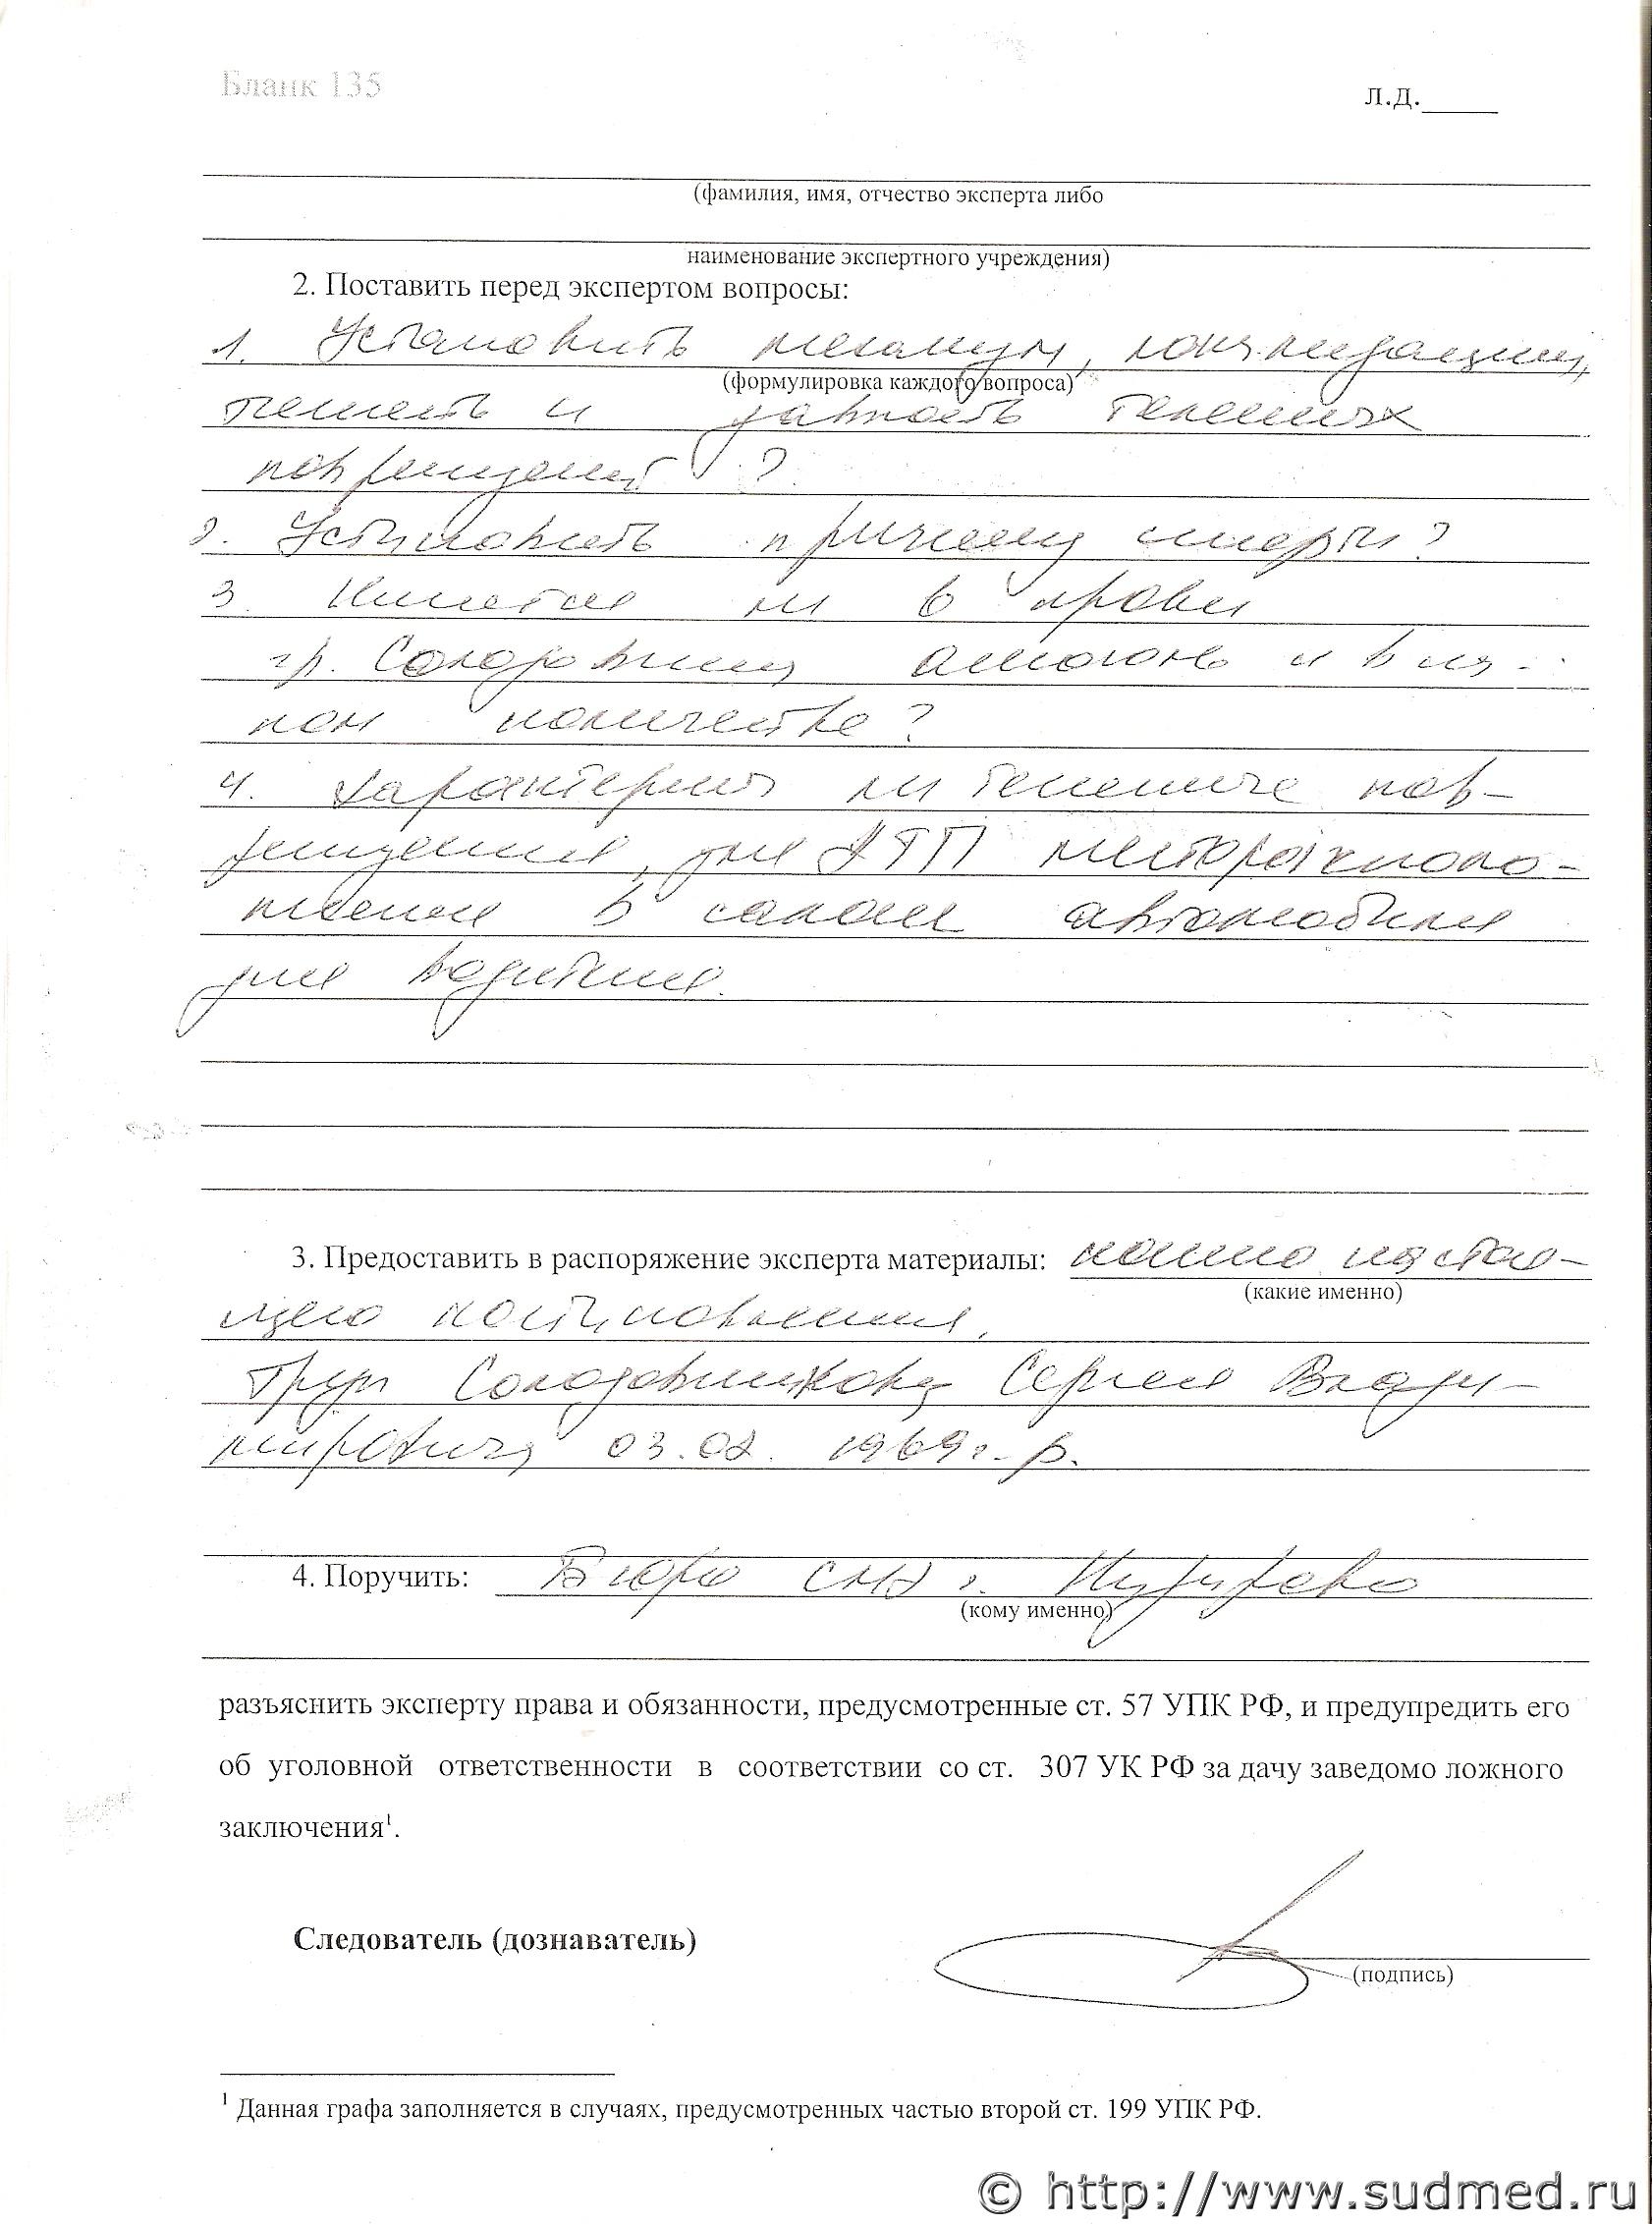 Бланк 135
Л.Д.
(фамилия, имя, отчество эксперта либо
наименование экспертного учреждения)
2. Поставить перед экспертом вопросы:
1. Установить механизм, локализацию,
(формулировка каждого вопроса)
тяжесть и давность телесных
повреждений ?
2. Установить причину смерти?
3. Имеется ли в крови
гр. алкоголь и в ка-
ком количестве?
4. Характерны ли телесные пов-
реждения, для ДТП месторасполо-
жения в салоне автомобиля
для водителя.
3. Предоставить в распоряжение эксперта материалы: копию настоя-
(какие именно)
щего постановления,
труп Солодовникова Сергея Влади-
мировича 03.02. 1969г.р.
4. Поручить: Бюро СМЭ г.
(кому именно)
разъяснить эксперту права и обязанности, предусмотренные ст. 57 УПК РФ, и предупредить его
об уголовной ответственности в соответствии со ст. 307 УК РФ за дачу заведомо ложного
заключения¹.
Следователь (дознаватель)
(подпись)
¹ Данная графа заполняется в случаях, предусмотренных частью второй ст. 199 УПК РФ.
© http://www.sudmed.ru